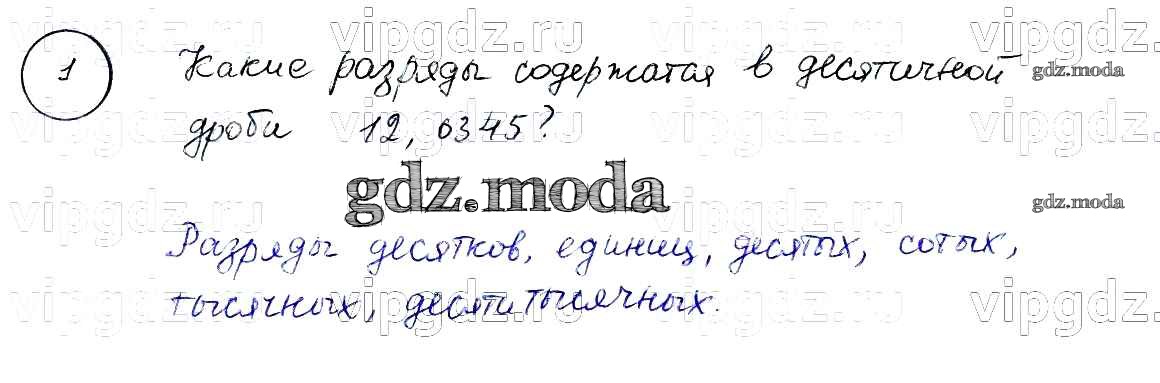 vipgdz.ru vipgdz.ru vipgdz.ru vipgdz.ru
1 Какие разряды содержатся в десятичной gdz.moda
дроби 12,0345?
vipgdz.ru vipgdz.ru vipgdz.ru vipgdz.ru
gdz.moda
vipgdz.ru vipgdz.ru vipgdz.ru vipgdz.ru
gdz.moda
Разряды десятков, единиц, десятых, сотых,
тысячных, десятитысячных.
vipgdz.ru vipgdz.ru vipgdz.ru vipgdz.ru